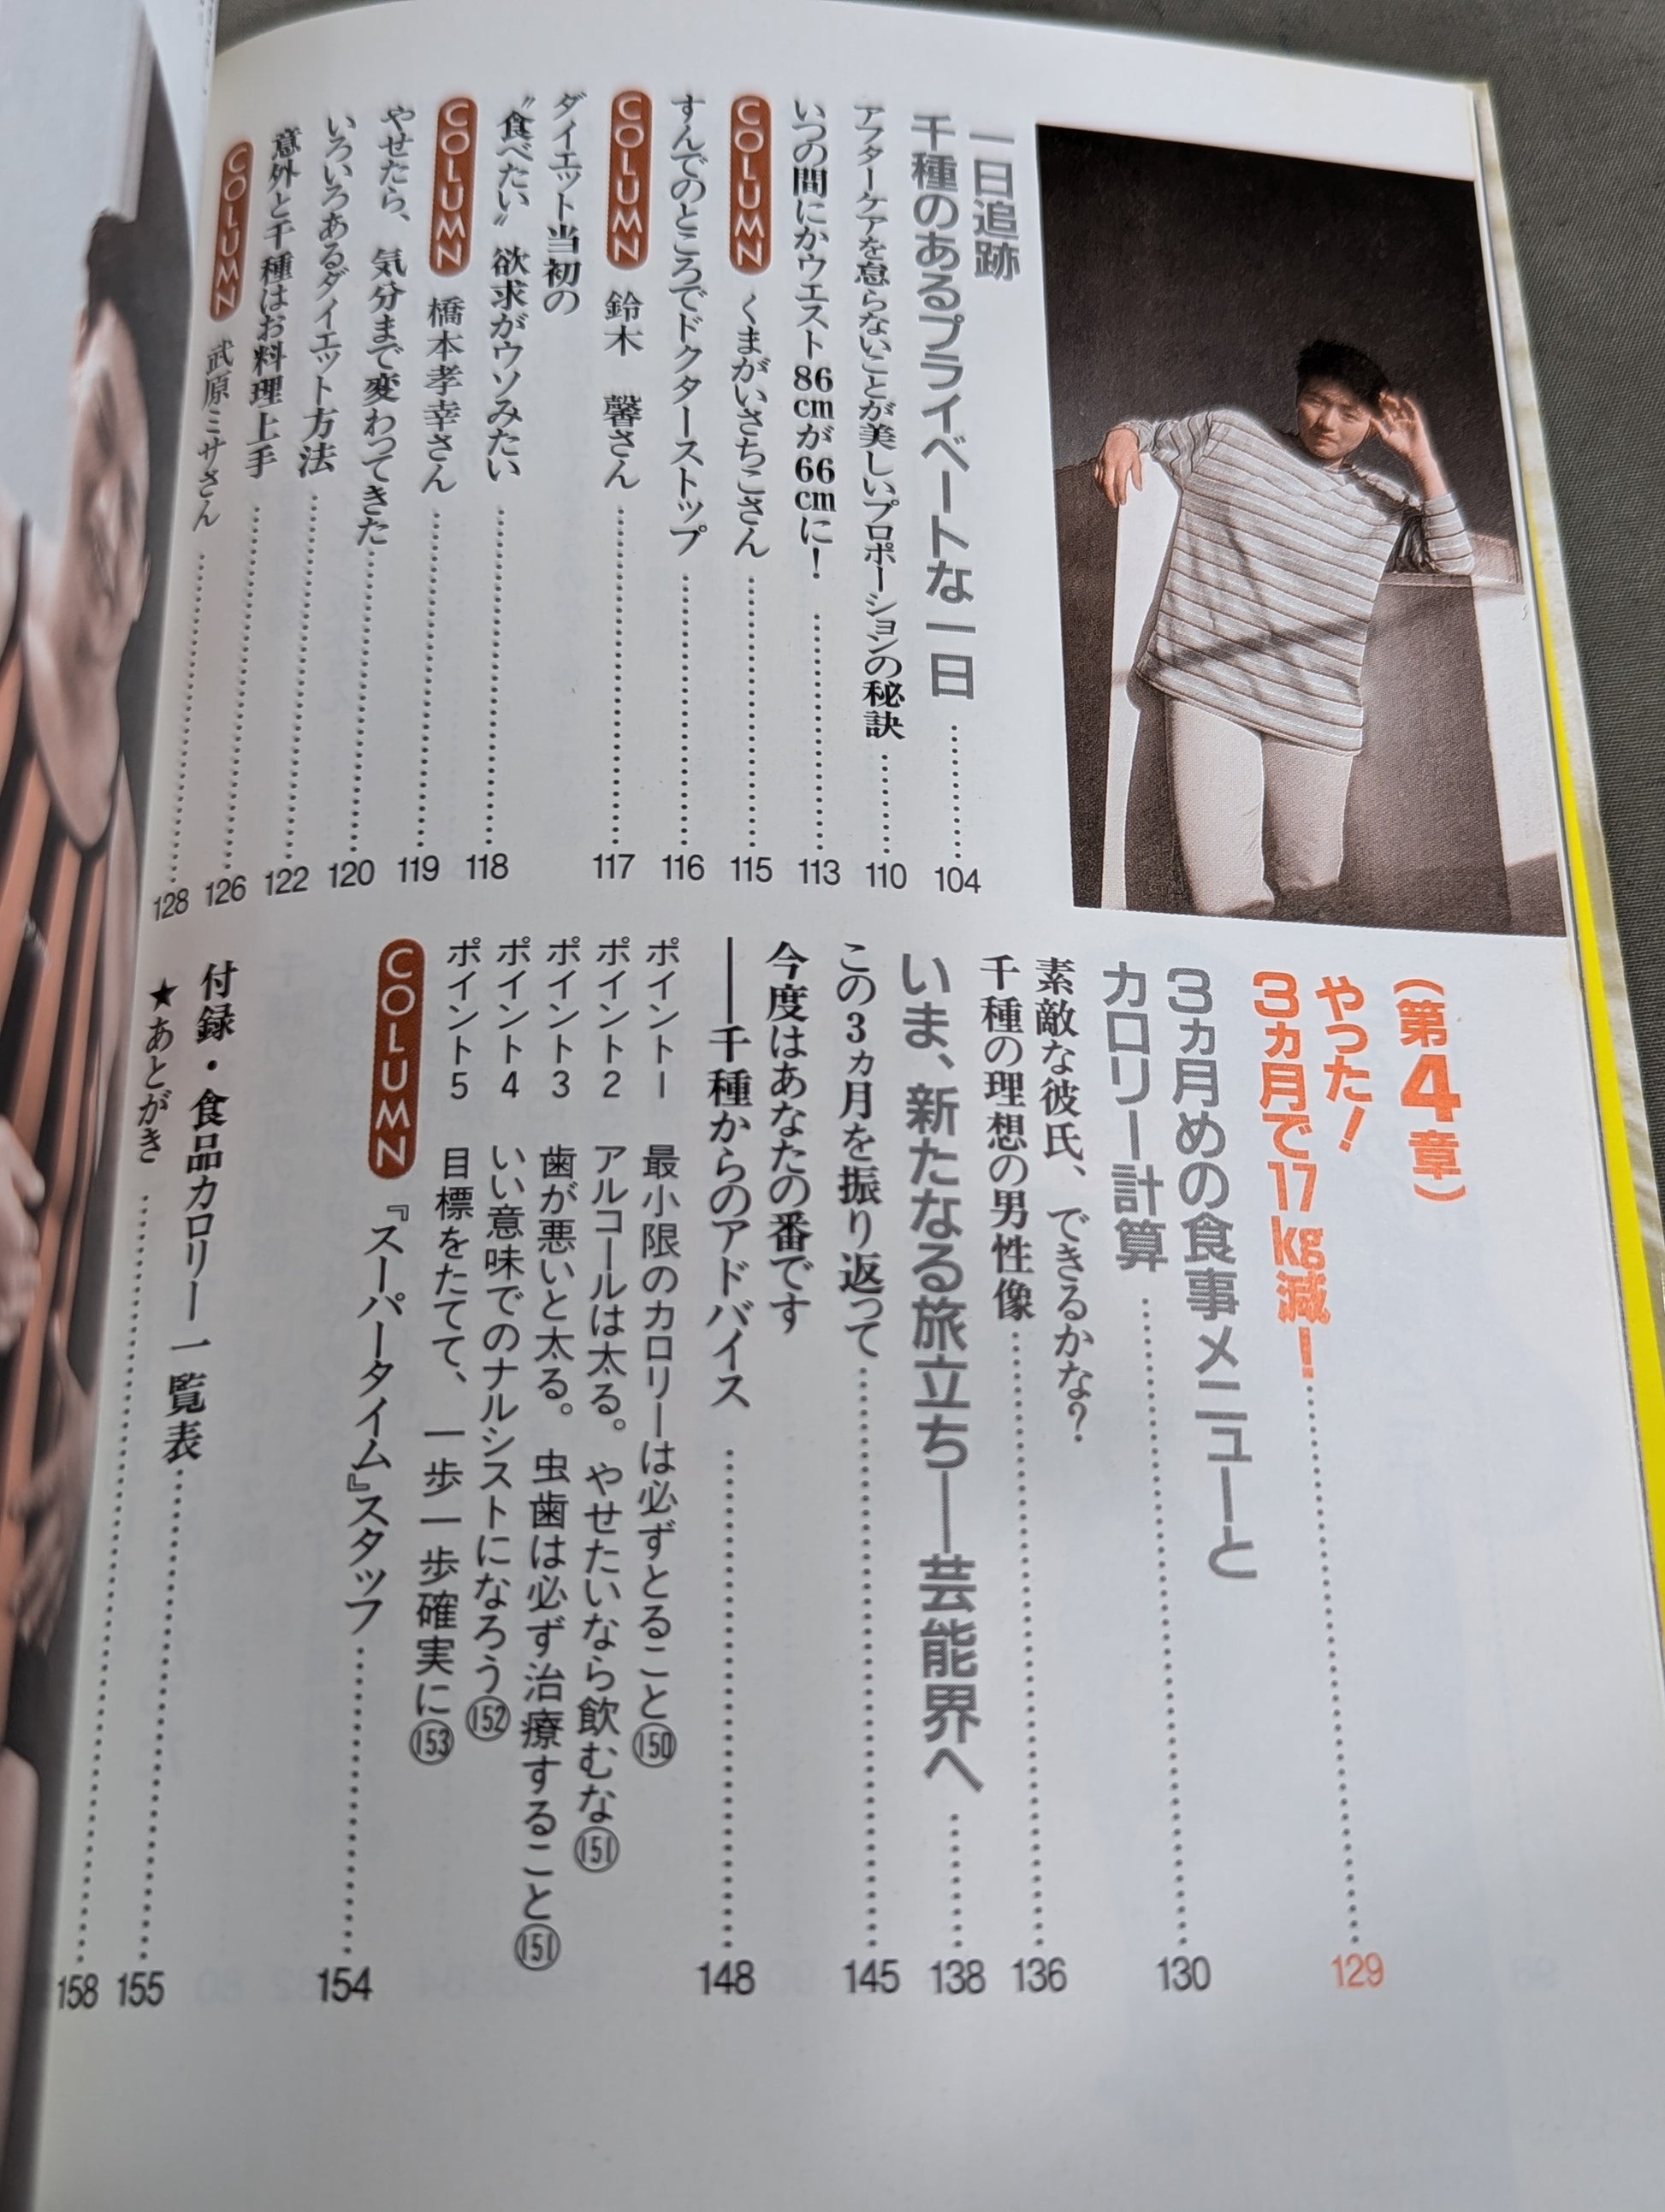 一日追跡
千種のあるプライベートな一日 104
アフターケアを怠らないことが美しいプロポーションの秘訣 110
いつの間にかウエスト86cmが66cmに! 113
COLUMN くまがいさちこさん 115
すんでのところでドクターストップ 116
COLUMN 鈴木 馨さん 117
ダイエット当初の
〝食べたい〟欲求がウソみたい 118
COLUMN 橋本孝幸さん 119
やせたら、気分まで変わってきた 120
いろいろあるダイエット方法 122
意外と千種はお料理上手 126
COLUMN 武原ミサさん 128
(第4章)
やった!
3ヵ月で17kg減! 129
3ヵ月めの食事メニューと
カロリー計算 130
素敵な彼氏、できるかな?
千種の理想の男性像 136
いま、新たなる旅立ち──芸能界へ 138
この3ヵ月を振り返って 145
今度はあなたの番です
──千種からのアドバイス 148
ポイント1 最小限のカロリーは必ずとること(150)
ポイント2 アルコールは太る。やせたいなら飲むな(151)
ポイント3 歯が悪いと太る。虫歯は必ず治療すること(151)
ポイント4 いい意味でのナルシストになろう(152)
ポイント5 目標をたてて、一歩一歩確実に(153)
COLUMN 『スーパータイム』スタッフ 154
付録・食品カロリー一覧表 155
★あとがき 158